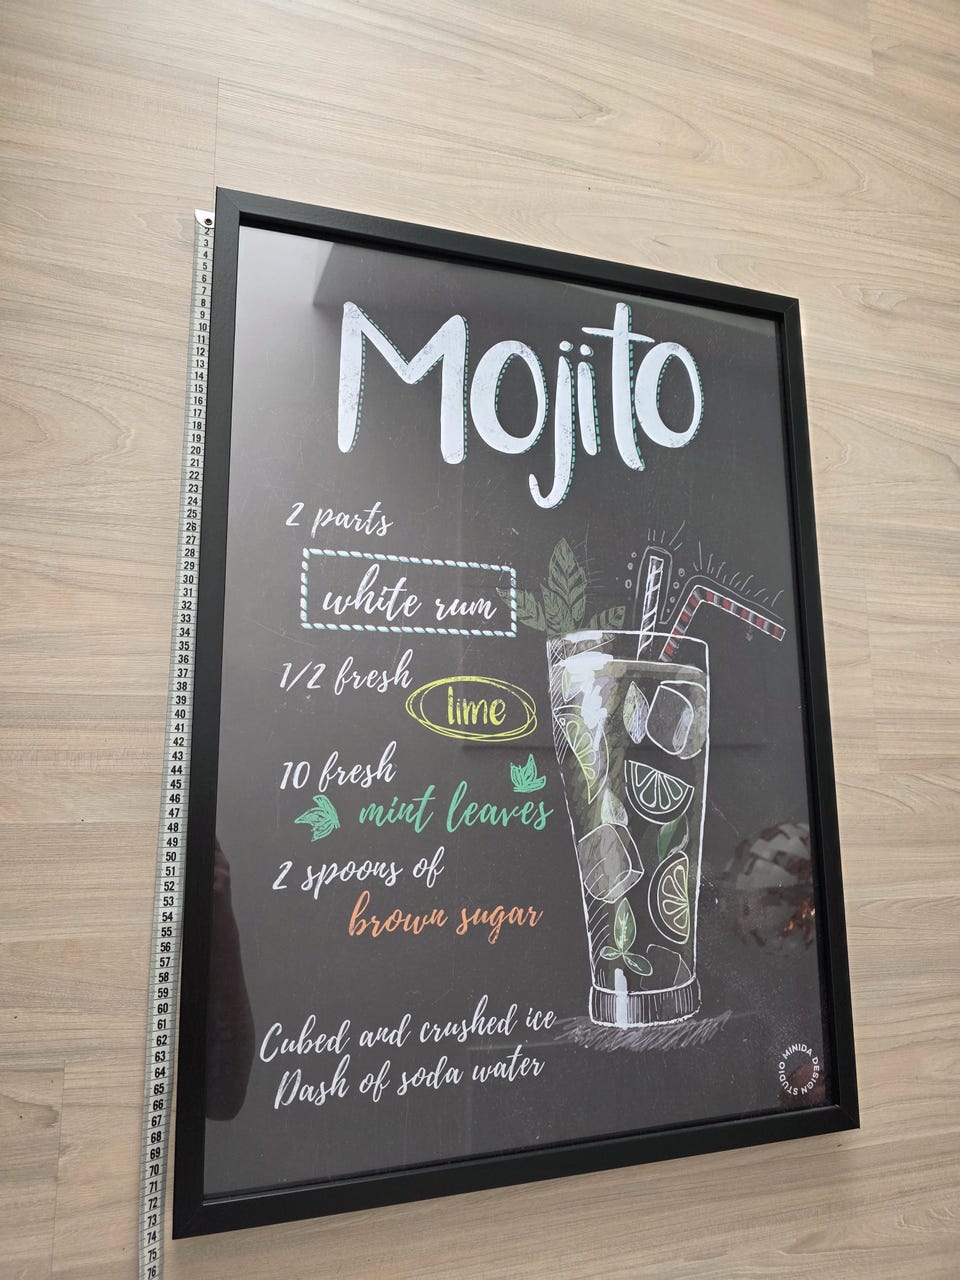 Mojito
2 parts
white rum
1/2 fresh
lime
10 fresh
mint leaves
2 spoons of
brown sugar
Cubed and crushed ice
Dash of soda water
MINIDA DESIGN STUDIO
2
3
4
5
6
7
8
9
10
11
12
13
14
15
16
17
18
19
20
21
22
23
24
25
26
27
28
29
30
31
32
33
34
35
36
37
38
39
40
41
42
43
44
45
46
47
48
49
50
51
52
53
54
55
56
57
58
59
60
61
62
63
64
65
66
67
68
69
70
71
72
73
74
75
76